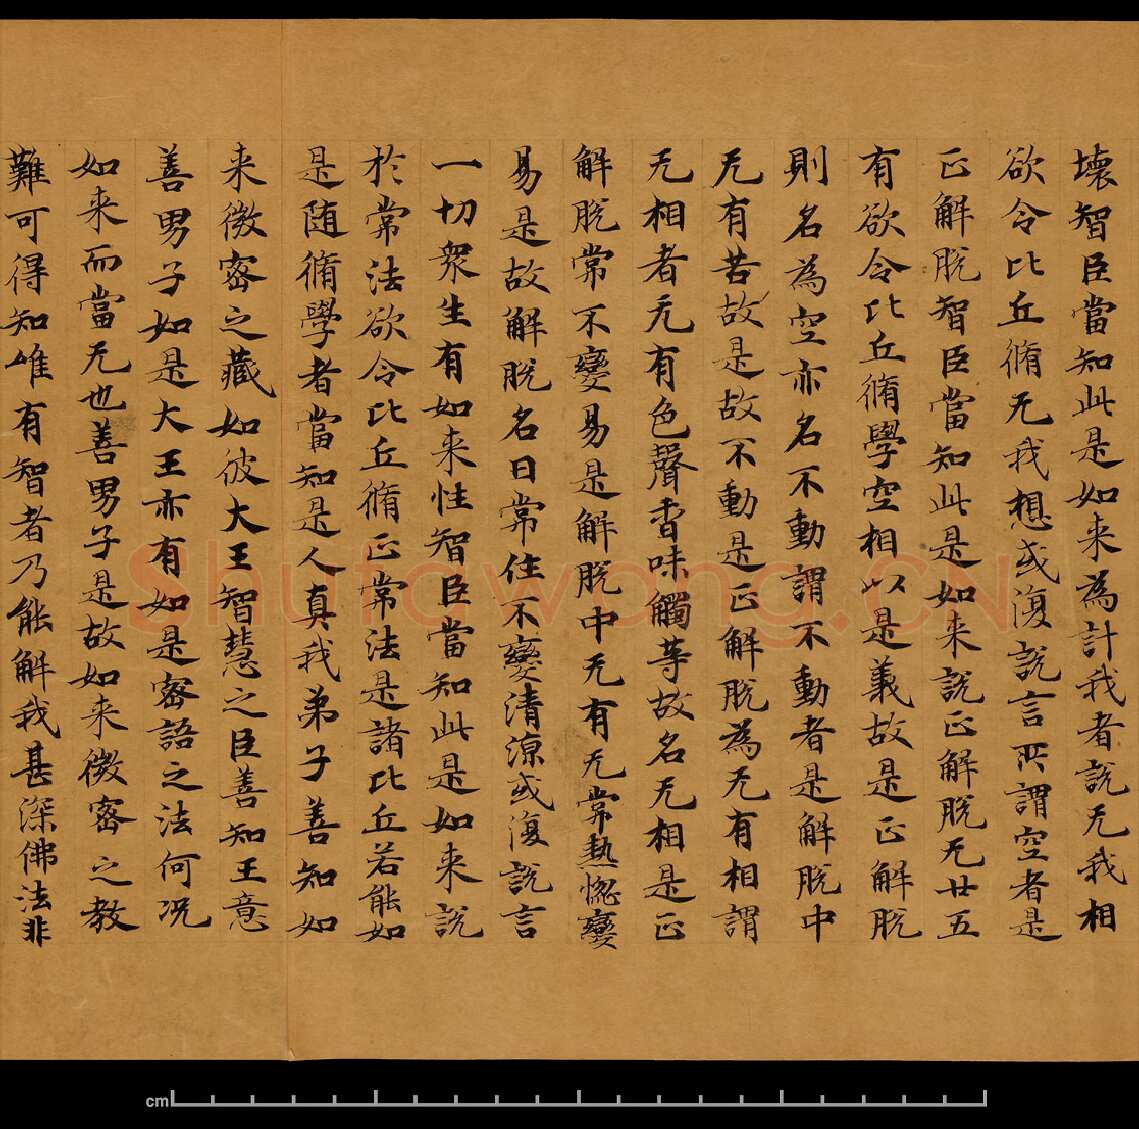 壞智臣當知此是如来為計我者說无我相
欲令比丘脩无我想或復說言所謂空者是
正解脫智臣當知此是如来說正解脫无廿五
有欲令比丘脩學空相以是義故是正解脫
則名為空亦名不動謂不動者是解脫中
无有苦故是故不動是正解脫為无有相謂
无相者无有色聲香味觸等故名无相是正
解脫常不變易是解脫中无有无常熱惱變
易是故解脫名曰常住不變清涼或復說言
一切衆生有如来性智臣當知此是如来說
於常法欲令比丘脩正常法是諸比丘若能如
是随脩學者當知是人真我弟子善知如
来微密之藏如彼大王智慧之臣善知王意
善男子如是大王亦有如是密語之法何况
如来而當无也善男子是故如来微密之教
難可得知唯有智者乃能解我甚深佛法非
Shufawang.CN
cm